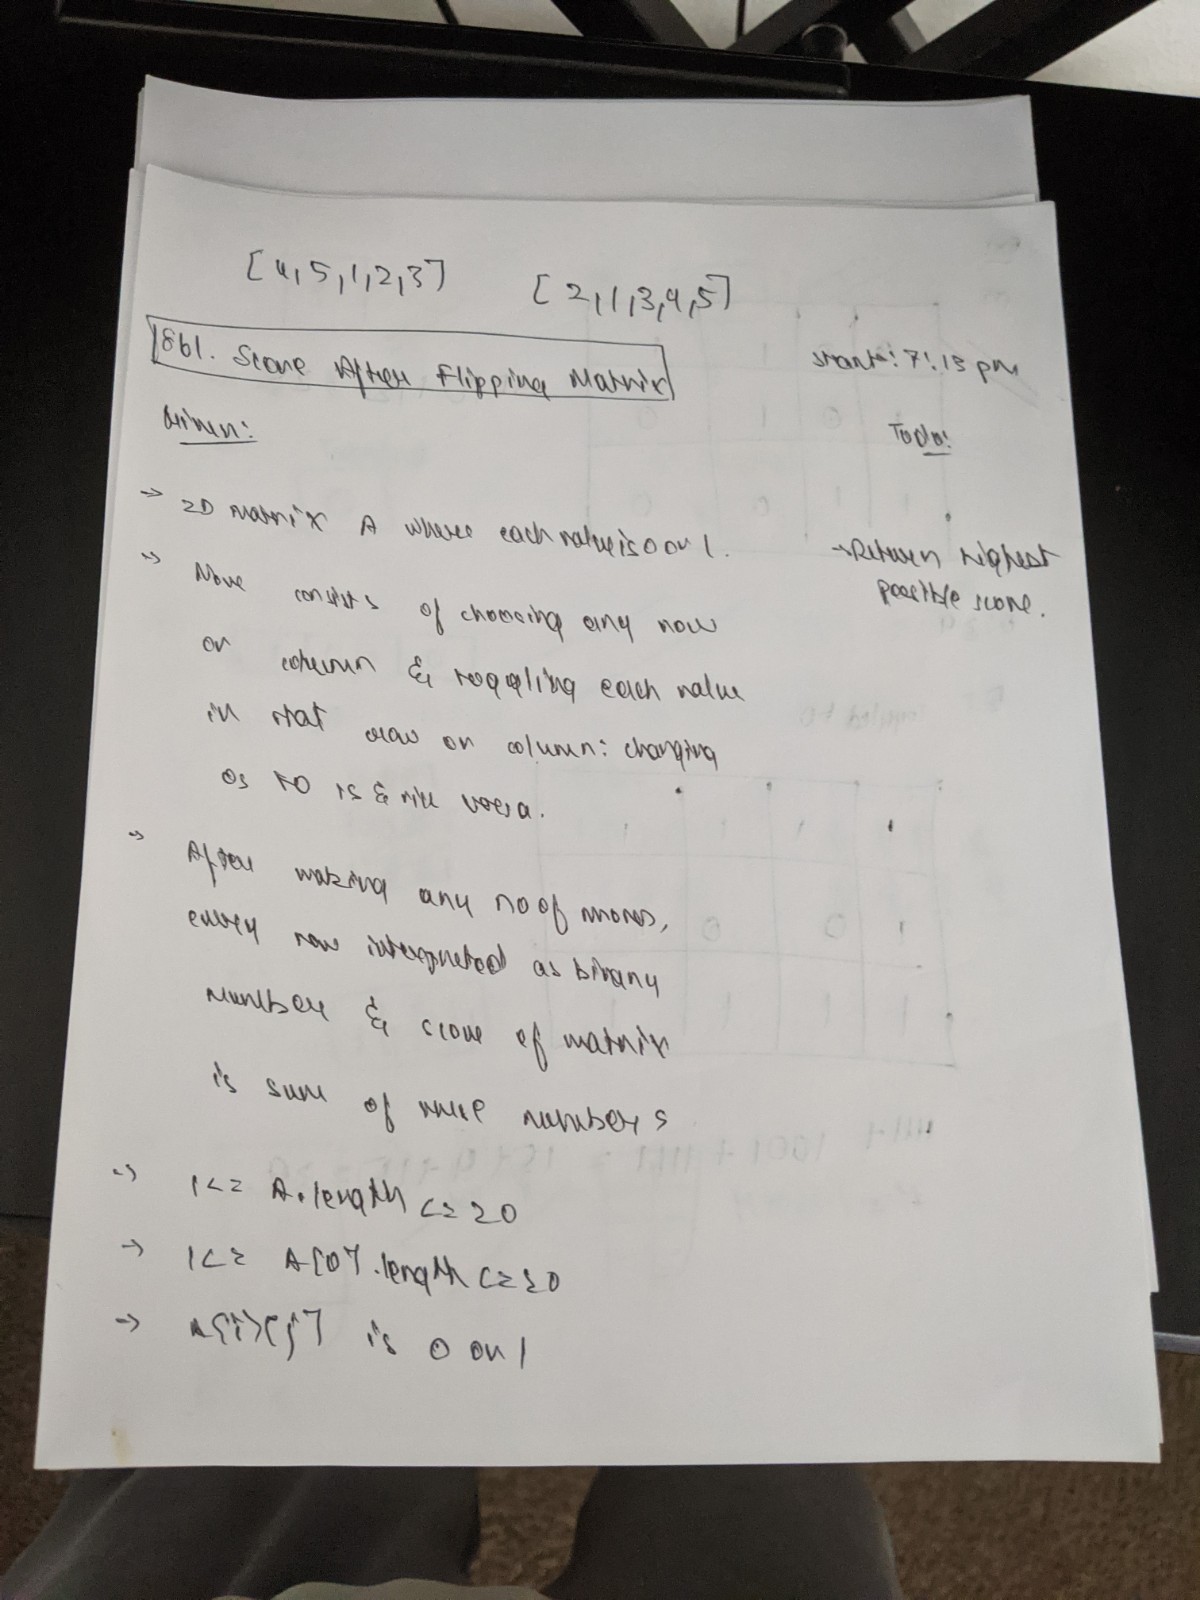 [4,5,1,2,3] [2,1,3,4,5]
861. Score After Flipping Matrix
start: 7:13 pm
Given:
Todo:
→ 2D Matrix A where each value is 0 or 1.
→ Return highest
possible score.
→ Move consists of choosing any row
or column & toggling each value
in that row or column: changing
0s to 1s & vice versa.
→ After making any no of moves,
every row interpreted as binary
number & score of matrix
is sum of these numbers
→ 1<= A.length <= 20
→ 1<= A[0].length <= 20
→ A[i][j] is 0 or 1